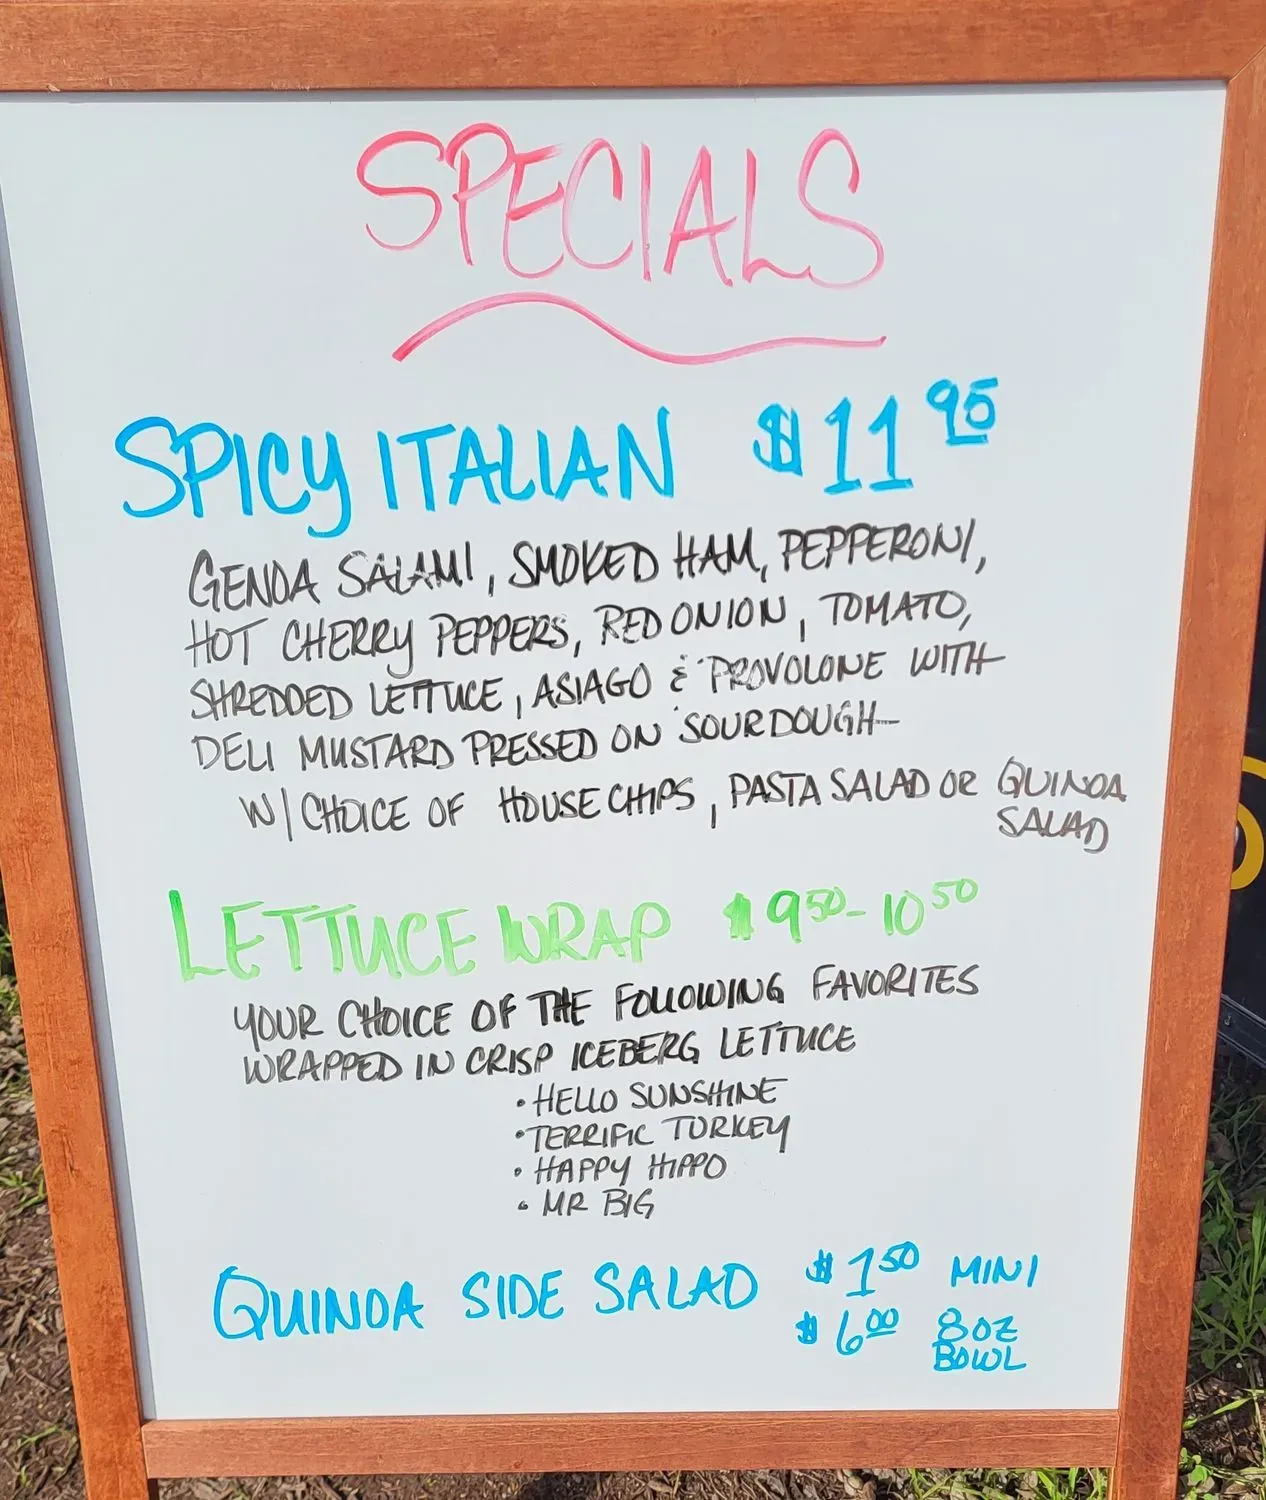 SPECIALS
SPICY ITALIAN $11.95
GENOA SALAMI, SMOKED HAM, PEPPERONI,
HOT CHERRY PEPPERS, RED ONION, TOMATO,
SHREDDED LETTUCE, ASIAGO & PROVOLONE WITH
DELI MUSTARD PRESSED ON SOURDOUGH
W/ CHOICE OF HOUSE CHIPS, PASTA SALAD OR QUINOA
SALAD
LETTUCE WRAP $9.50-10.50
YOUR CHOICE OF THE FOLLOWING FAVORITES
WRAPPED IN CRISP ICEBERG LETTUCE
• HELLO SUNSHINE
• TERRIFIC TURKEY
• HAPPY HIPPO
• MR BIG
QUINOA SIDE SALAD $1.50 MINI
$6.00 8OZ
BOWL